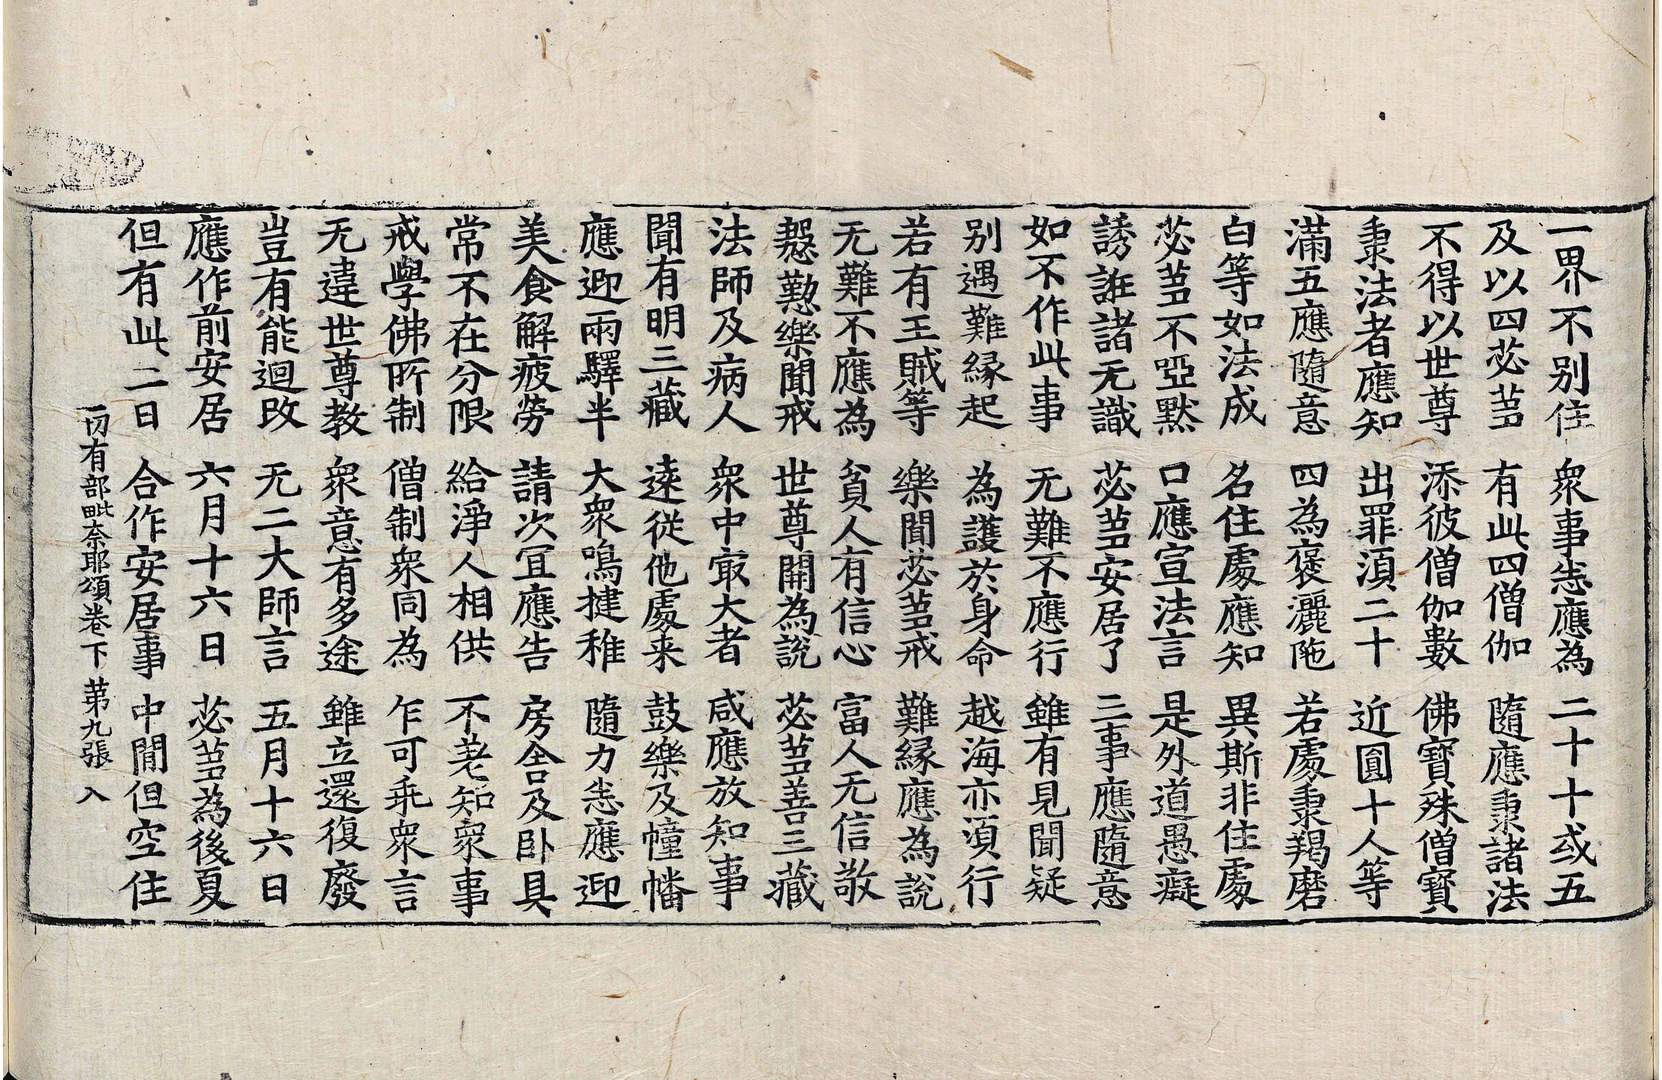 一界不别住　衆事悉應為　二十十或五
及以四苾芻　有此四僧伽　隨應秉諸法
不得以世尊　添彼僧伽數　佛寶殊僧寶
秉法者應知　出罪湏二十　近圓十人等
滿五應隨意　四為褒灑陁　若處秉羯磨
白等如法成　名住處應知　異斯非住處
苾芻不啞默　口應宣法言　是外道愚癡
誘誑諸无識　苾芻安居了　三事應隨意
如不作此事　无難不應行　雖有見聞疑
别遇難緣起　為護於身命　越海亦湏行
若有王賊等　樂聞苾芻戒　難緣應為說
无難不應為　貧人有信心　富人无信敬
慇懃樂聞戒　世尊開為說　苾芻善三藏
法師及病人　衆中㝡大者　咸應放知事
聞有明三藏　遠從他處来　鼓樂及幢幡
應迎兩驛半　大衆鳴揵稚　隨力悉應迎
美食解疲勞　請次冝應告　房舍及卧具
常不在分限　給淨人相供　不差知衆事
戒學佛所制　僧制衆同為　乍可乖衆言
无違世尊教　衆意有多途　雖立還復廢
豈有能迴改　无二大師言　五月十六日
應作前安居　六月十六日　苾芻為後夏
但有此二日　合作安居事　中閒但空住
一切有部毗奈耶頌卷下　第九張　入